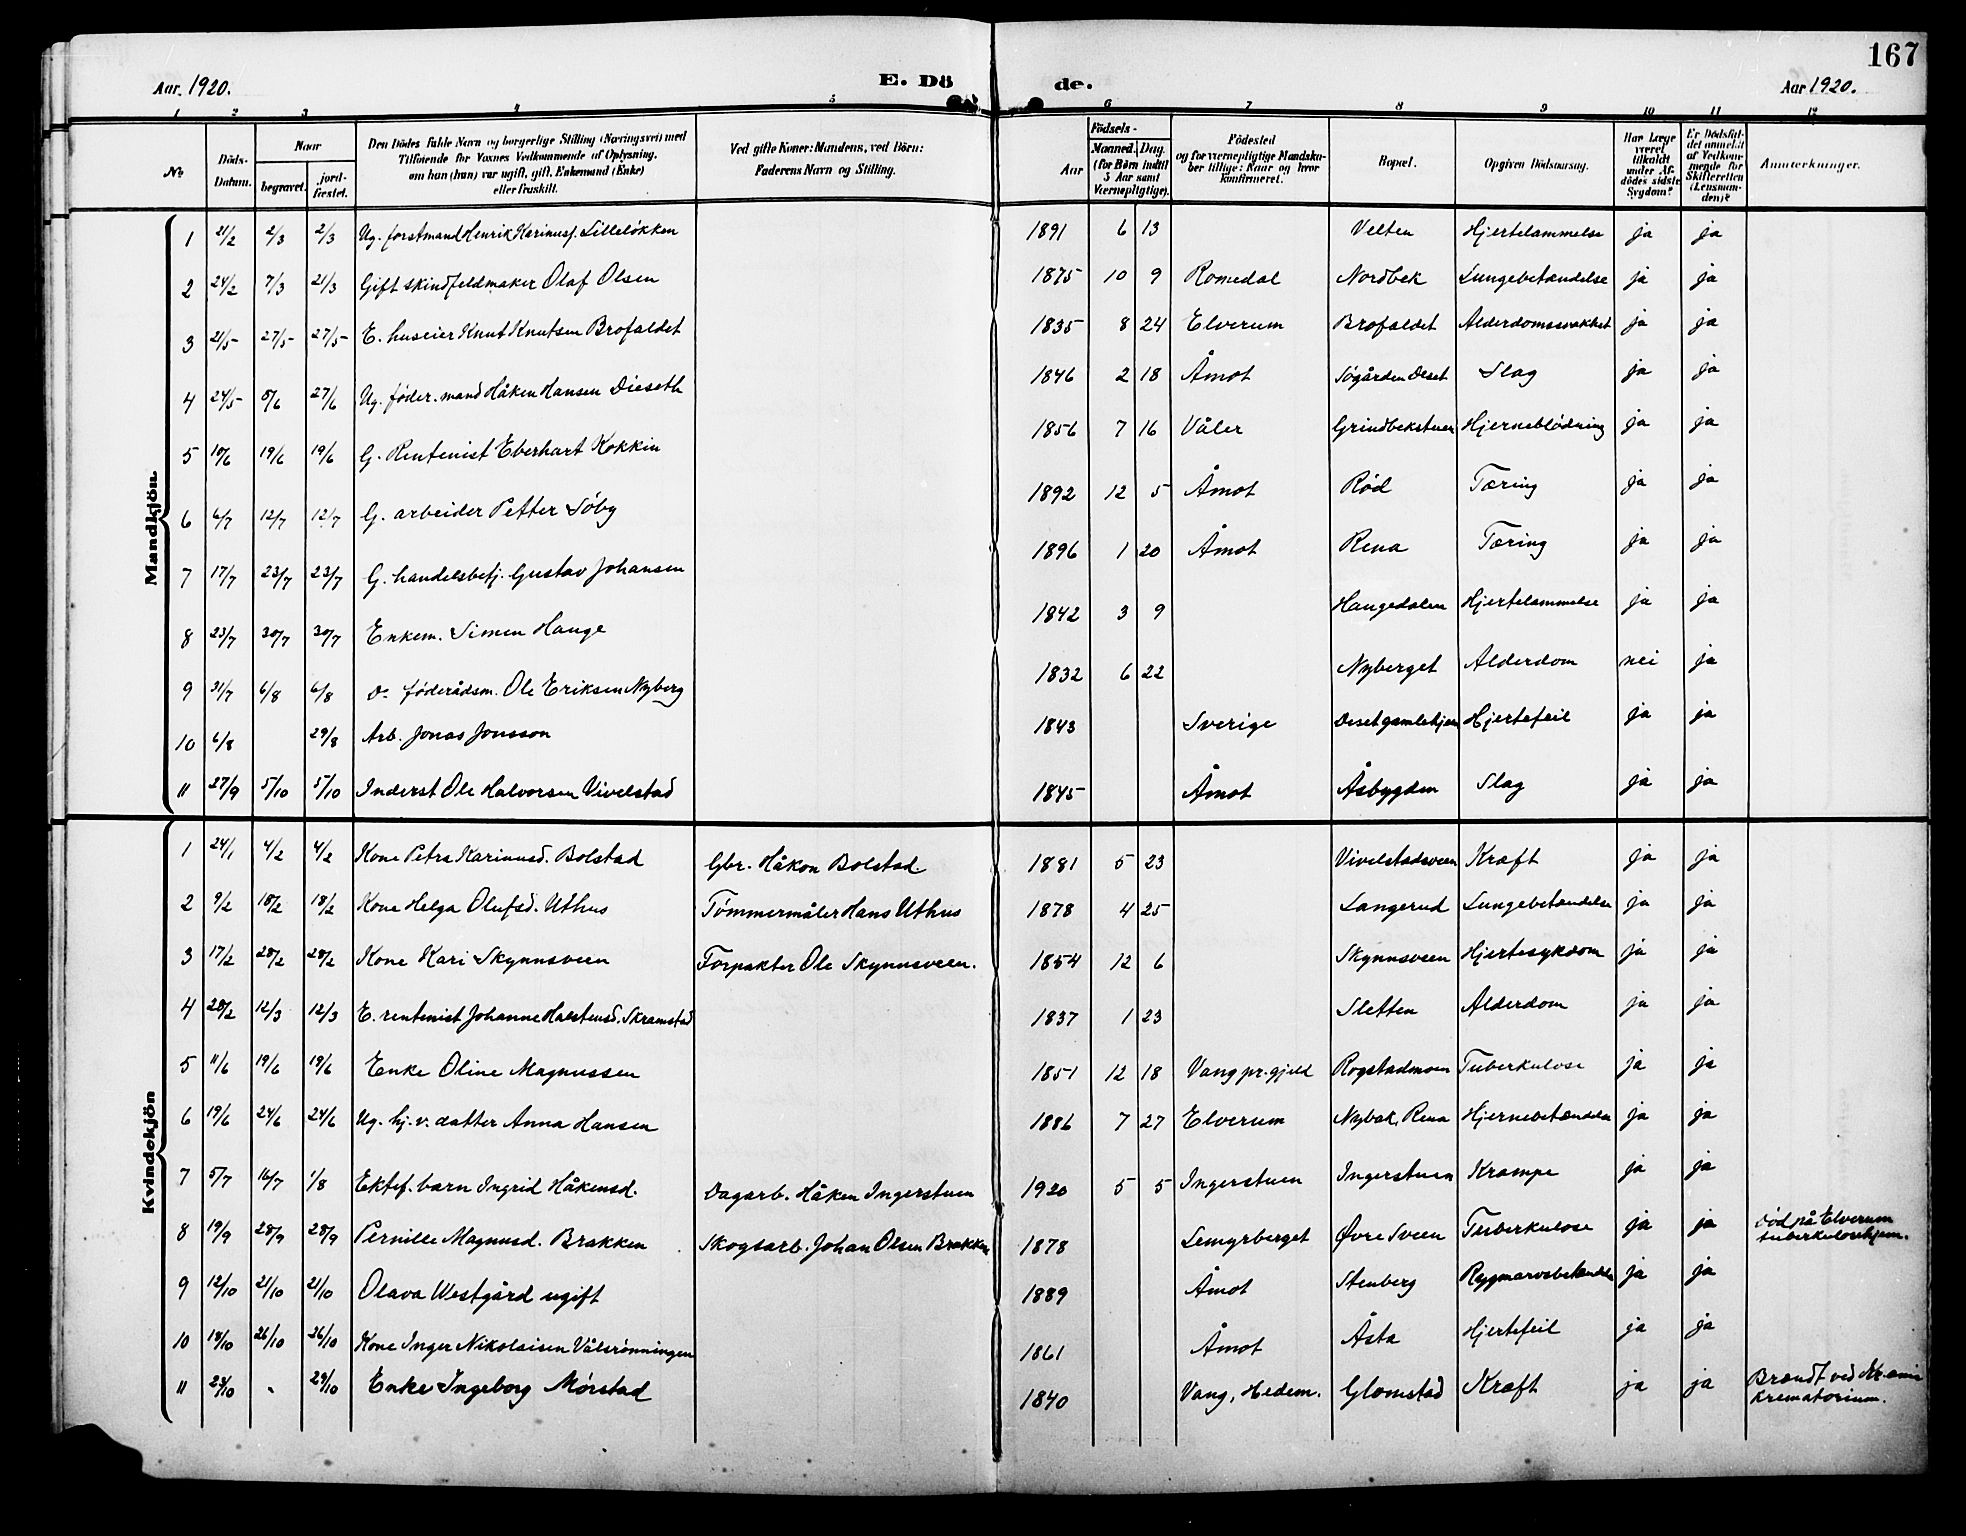 167
Aar 1920. E. Dö de. Aar 1920.
1 2 3 4 5 6 7 8 9 10 11 12
No. Döds-Datum. Naar begravet. jord-fæstet. Den Dödes fulde Navn og borgerlige Stilling (Næringsvei) med Tilföiende for Voxnes Vedkommende af Oplysning, om han (hun) var ugift, gift, Enkemand (Enke) eller fraskilt. Ved gifte Koner: Mandens, ved Börn: Faderens Navn og Stilling. Födsels- Aar Maaned. Dag. (for Börn indtil 5 Aar samt Værnepligtige). Födested og for værnepligtige Mandskaber tillige: Naar og hvor konfirmeret. Bopæl. Opgiven Dödsaarsag. Har Læge været tilkaldt under Afdödes sidste Sygdom? Er Dödsfaldet anmeldt af Vedkommende for Skifteretten (Lensmanden)? Anmærkninger.
Mandkjön.
1 21/2 2/3 2/3 Ug. forstmand Henrik Karinusf. Lilleløkken 1891 6 13 Velten Hjertelammelse ja ja
2 24/2 7/3 21/3 Gift skindfeldmaker Olaf Olsen 1875 10 9 Romedal Nordbek Lungebetændelse ja ja
3 21/5 27/5 27/5 E. huseier Knut Knutsen Brofaldet 1835 8 24 Elverum Brofaldet Alderdomssvakhet ja ja
4 24/5 8/6 27/6 Ug. føder.mand Håken Hansen Dieseth 1846 2 18 Åmot Søgården Deset Slag ja ja
5 10/6 19/6 19/6 G. Rentenist Eberhart Kokkin 1856 7 16 Våler Grindbekstuen Hjerneblødning ja ja
6 6/7 12/7 12/7 G. arbeider Petter Søby 1892 12 5 Åmot Rød Tæring ja ja
7 17/7 23/7 23/7 G. handelsbetj. Gustav Johansen 1896 1 20 Åmot Rena Tæring ja ja
8 23/7 30/7 30/7 Enkem. Simen Hauge 1842 3 9 Haugedalen Hjertelammelse ja ja
9 31/7 6/8 6/8 Do føderådsm. Ole Eriksen Nyberg 1832 6 22 Nyberget Alderdom nei ja
10 6/8 29/8 Arb. Jonas Jonsson 1843 Sverige Deset gamlehjem Hjertefeil ja ja
11 27/9 5/10 5/10 Inderst Ole Halvorsen Vivelstad 1845 Åmot Åsbygden Slag ja ja
Kvindekjön
1 24/1 4/2 4/2 Kone Petra Karinusd. Bolstad Gbr. Håkon Bolstad 1881 5 23 Vivelstadsveen Kræft ja ja
2 9/2 18/2 18/2 Kone Helga Olufsd. Uthus Tømmermåler Hans Uthus 1878 4 25 Langerud Lungebetændelse ja ja
3 17/2 28/2 28/2 Kone Kari Skynnsveen Forpakter Ole Skynnsveen. 1854 12 6 Skynnsveen Hjertesykdom ja ja
4 28/2 12/3 12/3 E. rentenist Johanne Halstensd. Skramstad 1837 1 23 Sletten Alderdom ja ja
5 11/6 19/6 19/6 Enke Oline Magnussen 1851 12 18 Vang pr.gjeld Rogstadmoen Tuberkulose ja ja
6 19/6 24/6 24/6 Ug. hj.v. datter Anna Hansen 1886 7 27 Elverum Nybak, Rena Hjernebetændelse ja ja
7 5/7 16/7 1/8 Ektef. barn Ingrid Håkensd. Dagarb. Håken Ingerstuen 1920 5 5 Ingerstuen Ingerstuen Krampe ja ja
8 19/9 28/9 28/9 Pernille Magnusd. Brakken Skogsarb. Johan Olsen Brakken 1878 Lemyrberget Øvre Sveen Tuberkulose ja ja Død på Elverum tuberkulosehjem.
9 12/10 21/10 21/10 Olava Westgård ugift 1889 Åmot Stenberg Rygmarvsbetændelse ja ja
10 18/10 26/10 26/10 Kone Inger Nikolaisen Vålsrønningen 1861 Åmot Åsta Hjertefeil ja ja
11 23/10 - 29/10 Enke Ingeborg Mørstad 1840 Vang, Hedem. Glomstad Kræft ja ja Brændt ved Kr.ania krematorium.